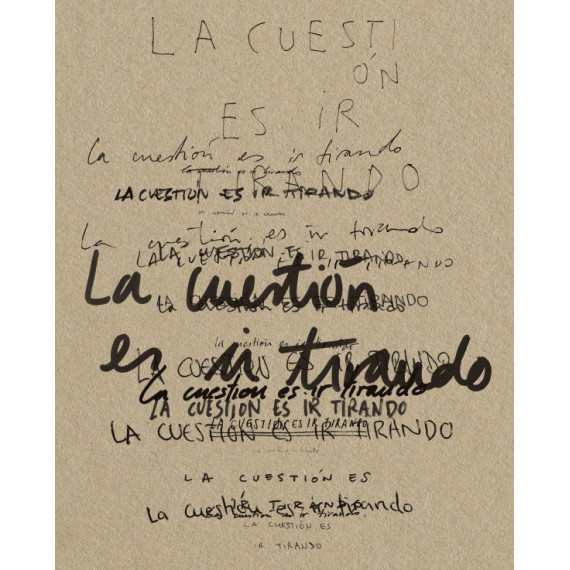 LA CUESTI
ÓN
ES IR
la cuestión es ir tirando
la cuestión es ir tirando
TIRANDO
LA CUESTION ES IR TIRANDO
La cuestión es ir tirando
LA CUESTION ES IR TIRANDO
LA CUESTION ES IR TIRANDO
La cuestión
LA CUESTION ES IR TIRANDO
es ir tirando
la cuestión es ir tirando
LA CUESTION ES IR TIRANDO
la cuestion es ir tirando
LA CUESTION ES IR TIRANDO
LA CUESTION ES IR TIRANDO
LA CUESTION ES IR TIRANDO
LA CUESTIÓN ES
IR TIRANDO
La cuestión es ir tirando
LA CUESTIÓN ES
IR TIRANDO